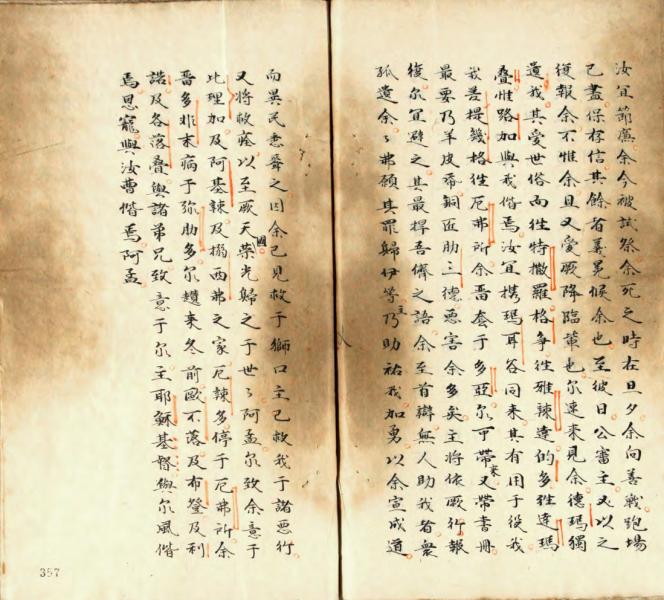 汝宜節廉余今被試祭余死之時在旦夕余向善戰跑場
己盡保存信其餘者義冕候余也至彼日公審主又以之
復報余不惟余且又愛厥降臨輩也尔速来見余德瑪獨
遺我其愛世俗而徃特撒羅格爭徃雅辣達的多徃達瑪
疊惟路加與我偕焉汝宜携瑪耳谷同来其有用于役我
我善提幾格徃厄弗所余啬套于多亞尔可帶来又帶書冊
最要乃羊皮希銅匠助三德悪害余多矣主將依厥行報
復尔宜避之其最捍吾儕之語余至首辯無人助我者衆
孤遺余々弗願其罪歸伊等主乃助祐我加勇以余宣成道
而異民悉聲之因余己見救于獅口主己救我于諸悪行
又將救癊以至厥天國榮光歸之于世々阿孟尔致余意于
比理加及阿基辣及搦西弗之家厄辣多停于厄弗所余
畨多非末病于弥助多尔趲来冬前歐不落及布瑩及利
諾及各落疊與諸弟兄致意于尔主耶穌基督與尔風偕
焉恩寵與汝曹偕焉阿孟
357